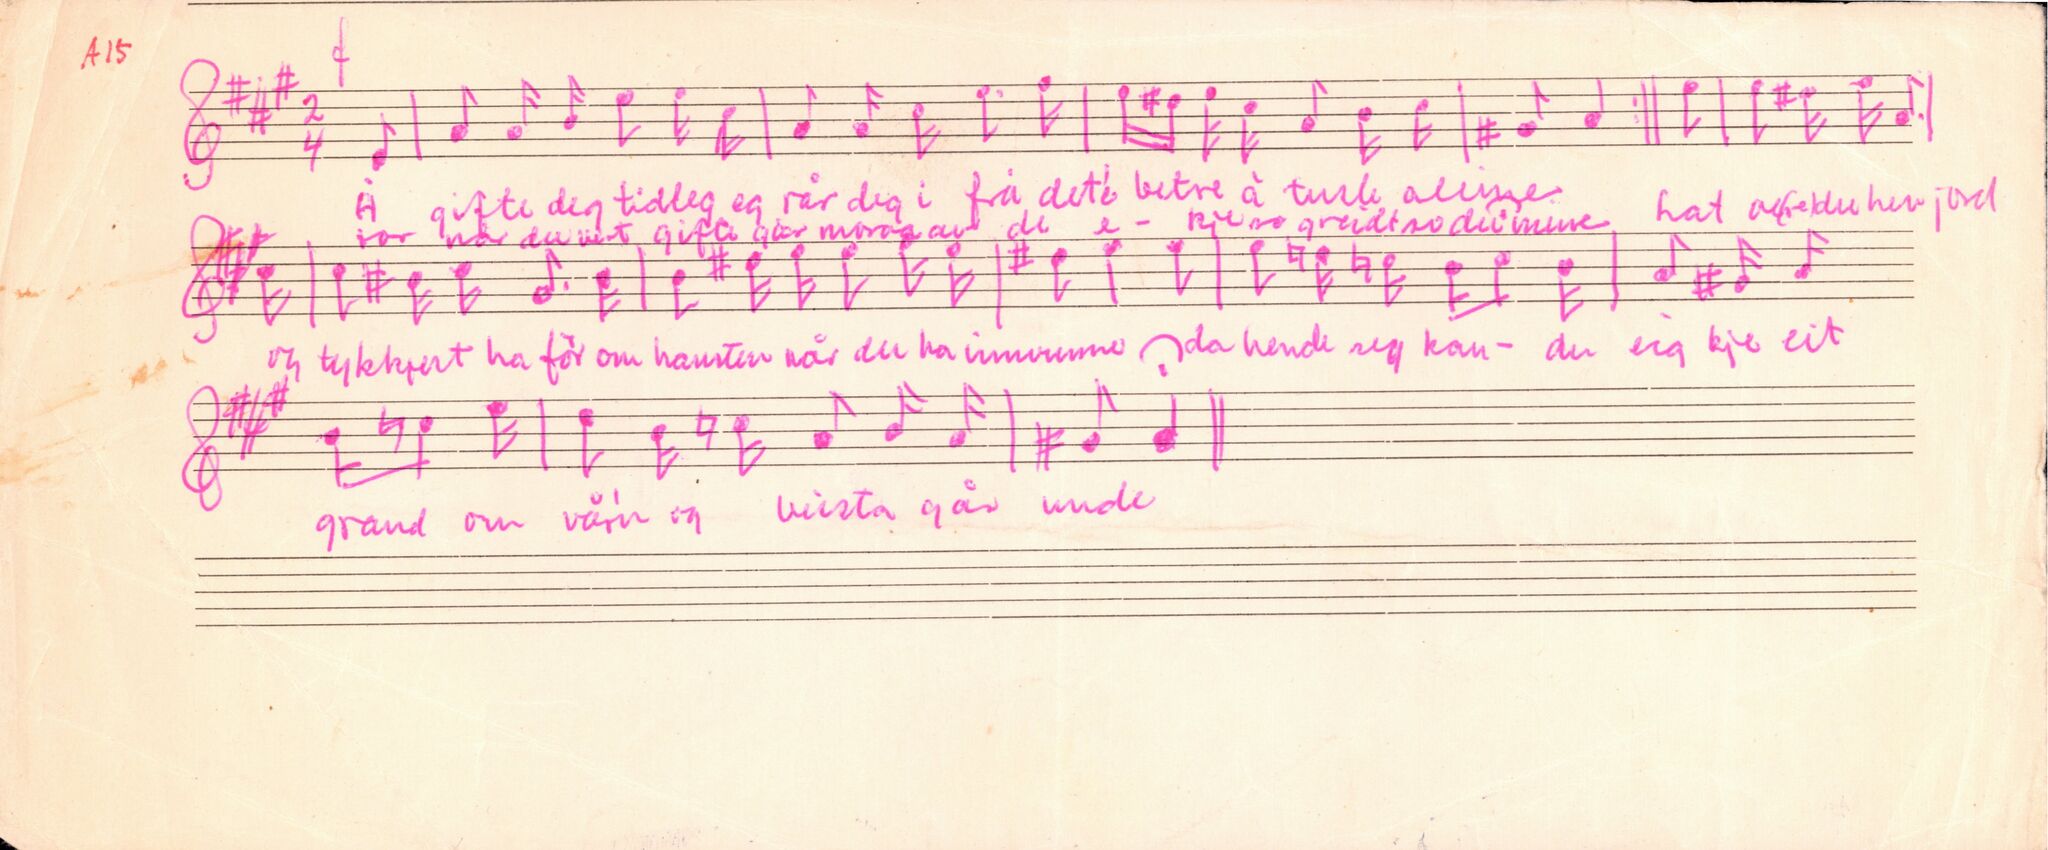 A15
f
2
4
Å gifte deg tidleg eg rår deg i frå det'e betre å tusle aleine
når du vert gifte går moroa av de e - kje so greidt so dei meine hat
du hev jord
og tykkjest ha för om hausten når du ha innvunne da hende seg kan - du eig kje eit
grand om vår'n og beista går unde